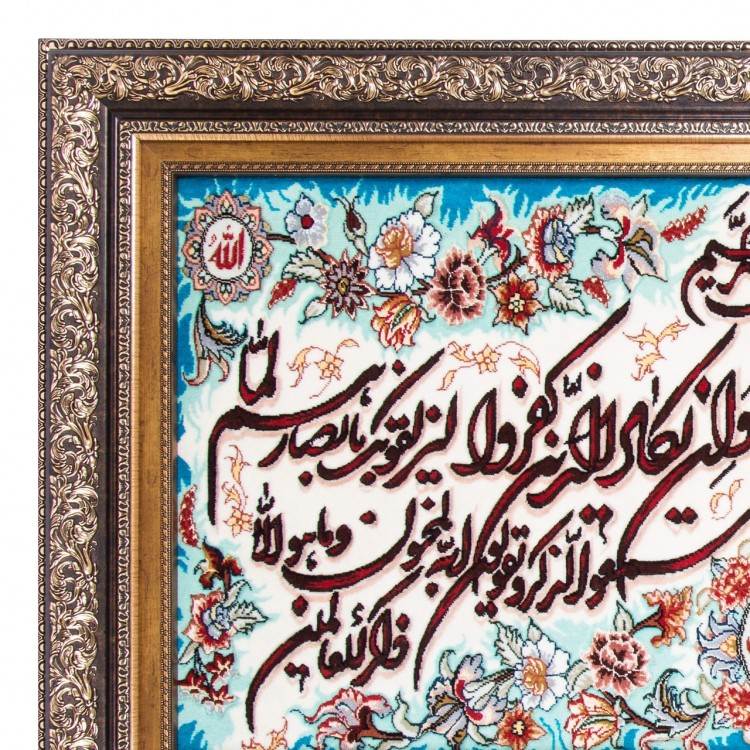 الله
وإن يكاد الذين كفروا ليزلقونك بأبصارهم لما
سمعوا الذكر ويقولون إنه لمجنون وما هو إلا
ذكر للعالمين